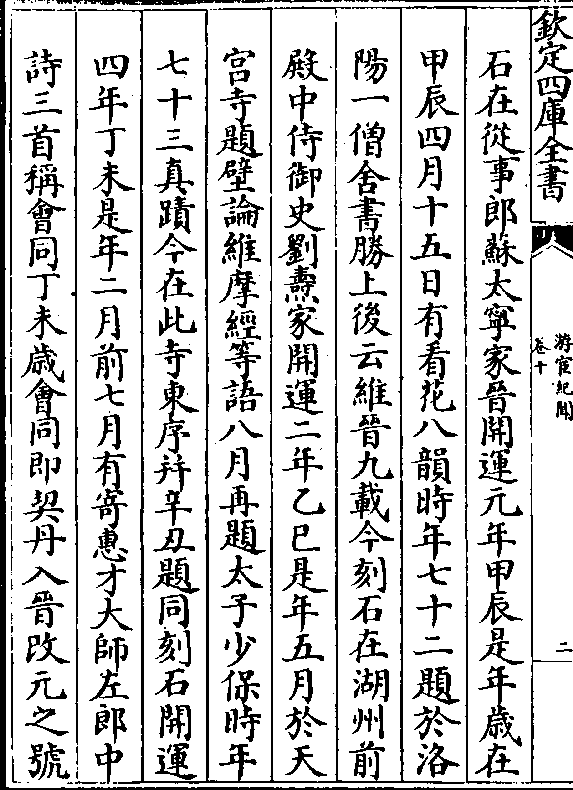 欽定四庫全書
游宦紀聞
卷十
二
石在從事郎蘇太寧家晉開運元年甲辰是年歲在
甲辰四月十五日有看花八韻時年七十二題於洛
陽一僧舍書勝上後云維晉九載今刻石在湖州前
殿中侍御史劉燾家開運二年乙巳是年五月於天
宫寺題壁論維摩經等語八月再題太子少保時年
七十三真蹟今在此寺東序并辛丑題同刻石開運
四年丁未是年二月前七月有寄惠才大師左郎中
詩三首稱會同丁未歲會同即契丹入晉改元之號